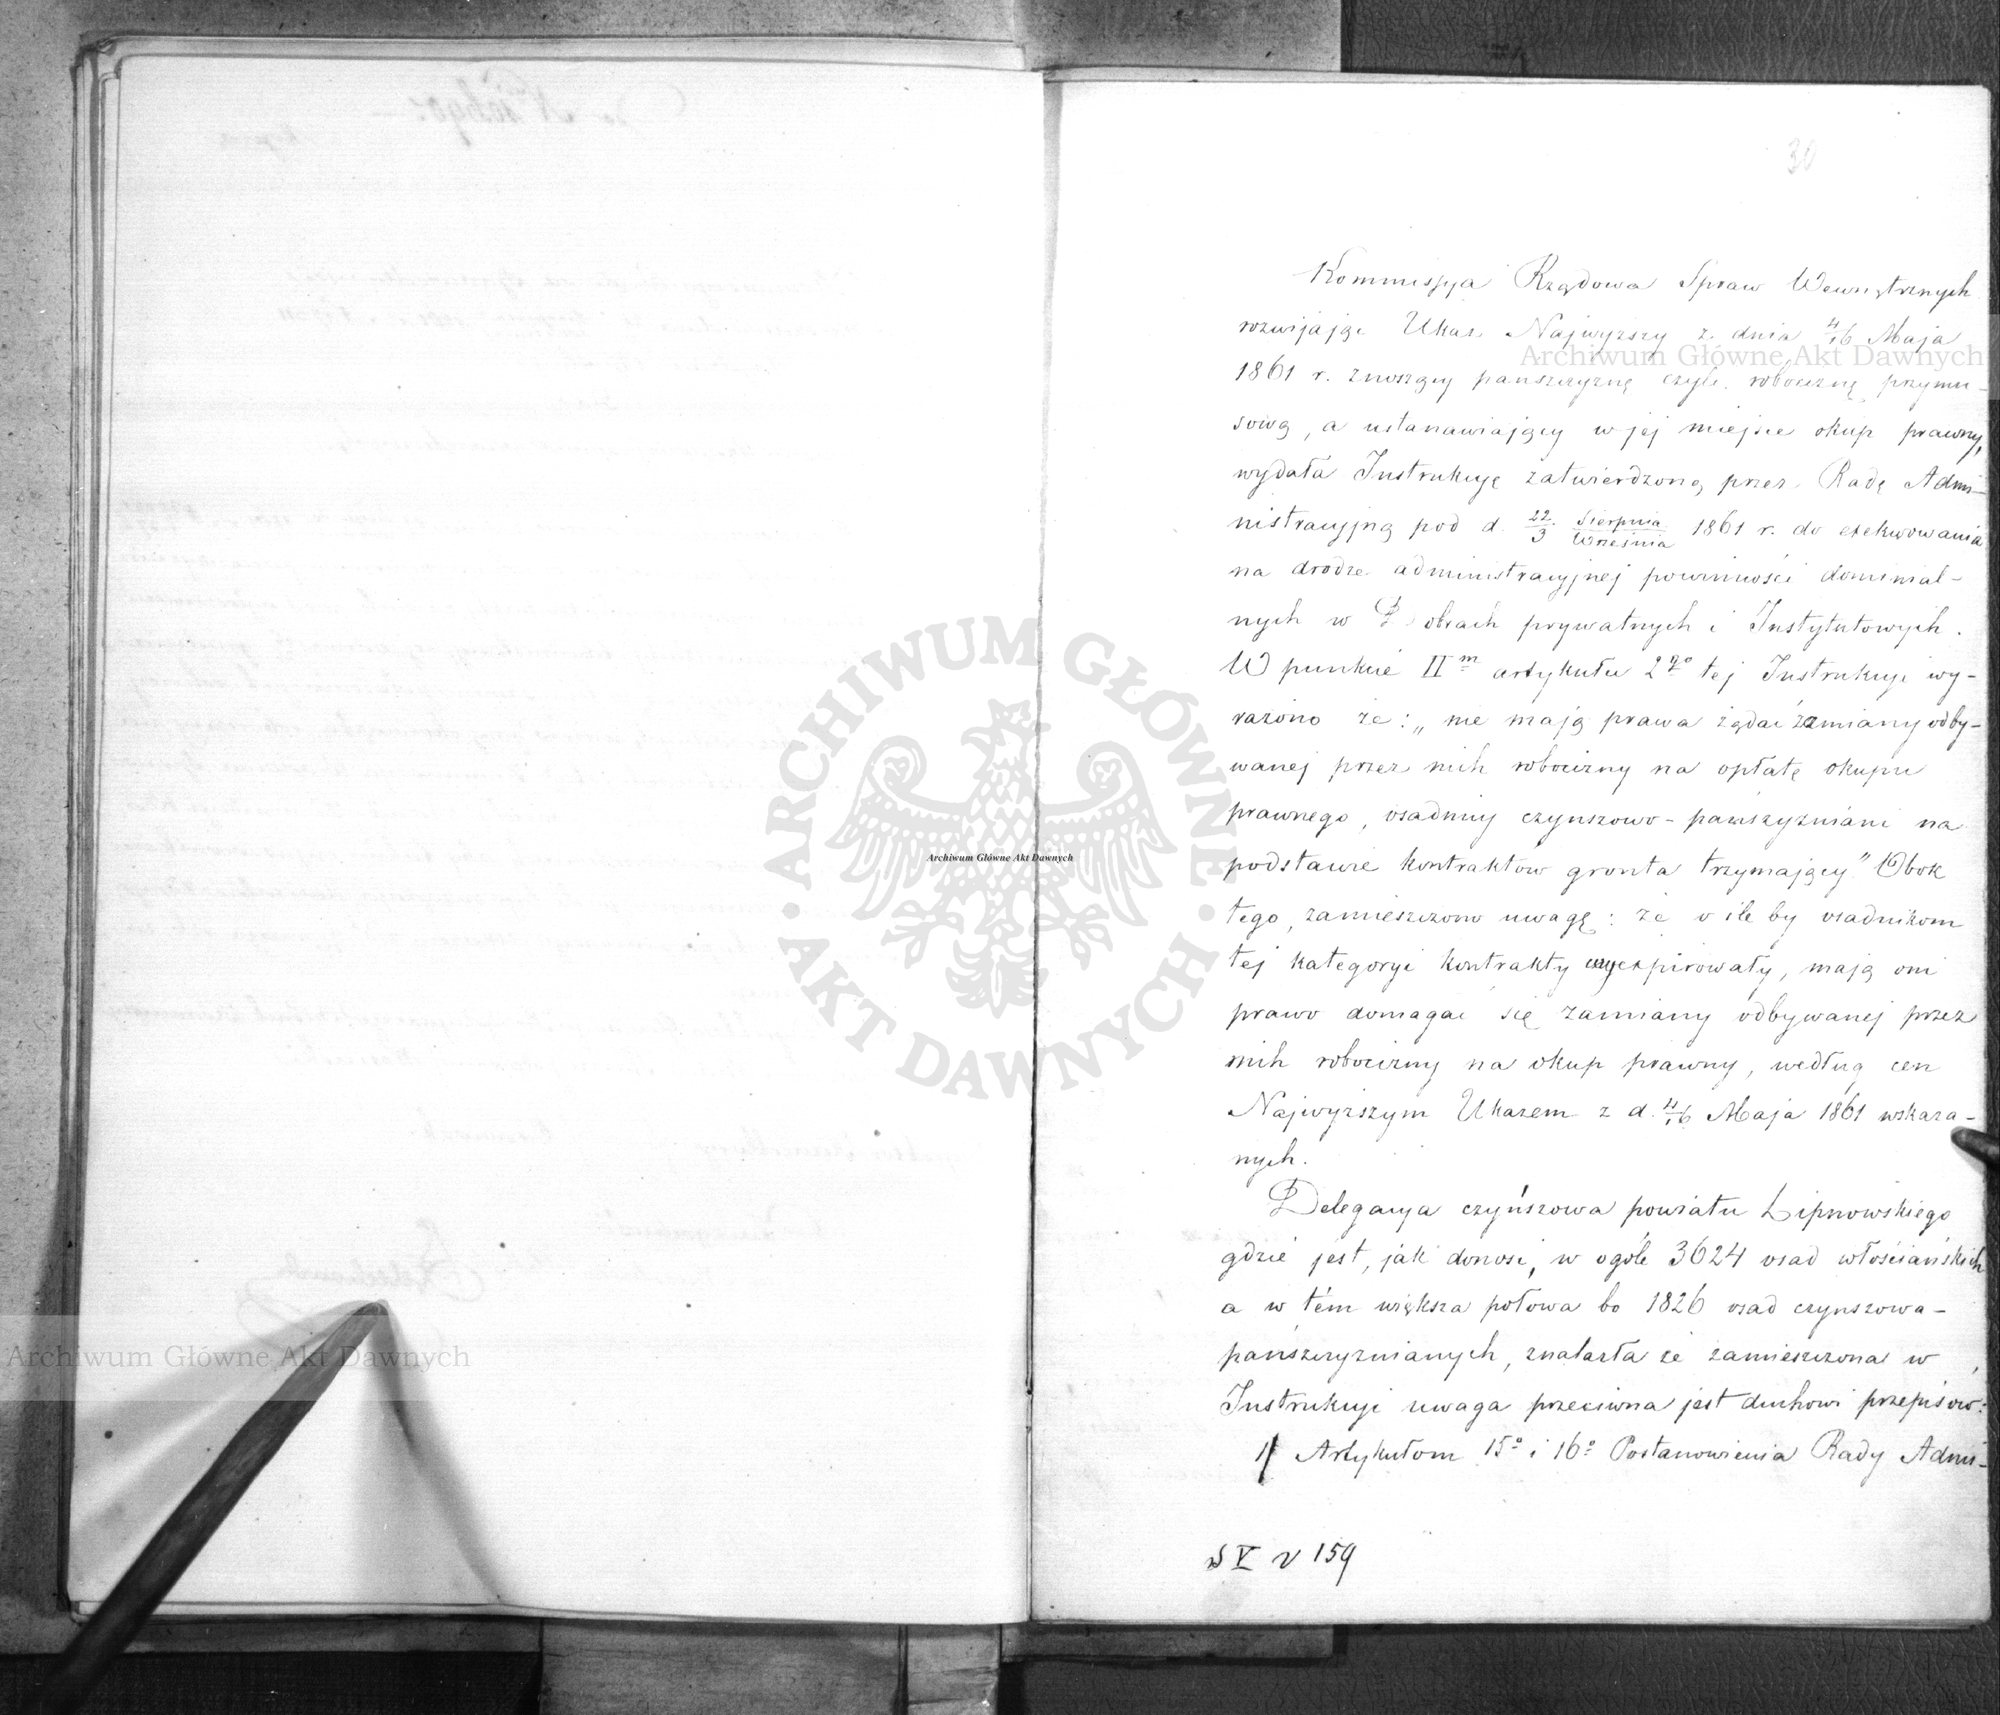 30
Kommissya Rządowa Spraw Wewnętrznych
rozwijając Ukaz Najwyższy z dnia 4/16 Maja
1861 r. znoszący pańszczyznę czyli robociznę przymu-
sową, a ustanawiający w jej miejsce okup prawny,
wydała Instrukcyę zatwierdzoną przez Radę Admi-
nistracyjną pod d. 22/3 Sierpnia/Września 1861 r. do exekwowania
na drodze administracyjnej powinności dominial-
nych w Dobrach prywatnych i Instytutowych.
W punkcie II m artykułu 2go tej Instrukcyi wy-
rażono że: „nie mają prawa żądać zamiany odby-
wanej przez nich robocizny na opłatę okupu
prawnego, osadnicy czynszowo-pańszczyźniani na
podstawie kontraktów gronta trzymający." Obok
tego, zamieszczono uwagę: że o ile by osadnikom
tej kategoryi kontrakty wyexpirowały, mają oni
prawo domagać się zamiany odbywanej przez
nich robocizny na okup prawny, według cen
Najwyższym Ukazem z d. 4/16 Maja 1861 wskaza-
nych.
Delegacya czyńszowa powiatu Lipnowskiego
gdzie jest, jak donosi, w ogóle 3624 osad włościańskich
a w tém większa połowa bo 1826 osad czynszowa-
pańszczyznianych, znalazła że zamieszczona w
Instrukcyi uwaga przeciwna jest duchowi przepisów:
1/ Artykułom 15o i 16o Postanowienia Rady Admi-
V v 159
Archiwum Główne Akt Dawnych
Archiwum Główne Akt Dawnych
Archiwum Główne Akt Dawnych
ARCHIWUM GŁÓWNE
AKT DAWNYCH